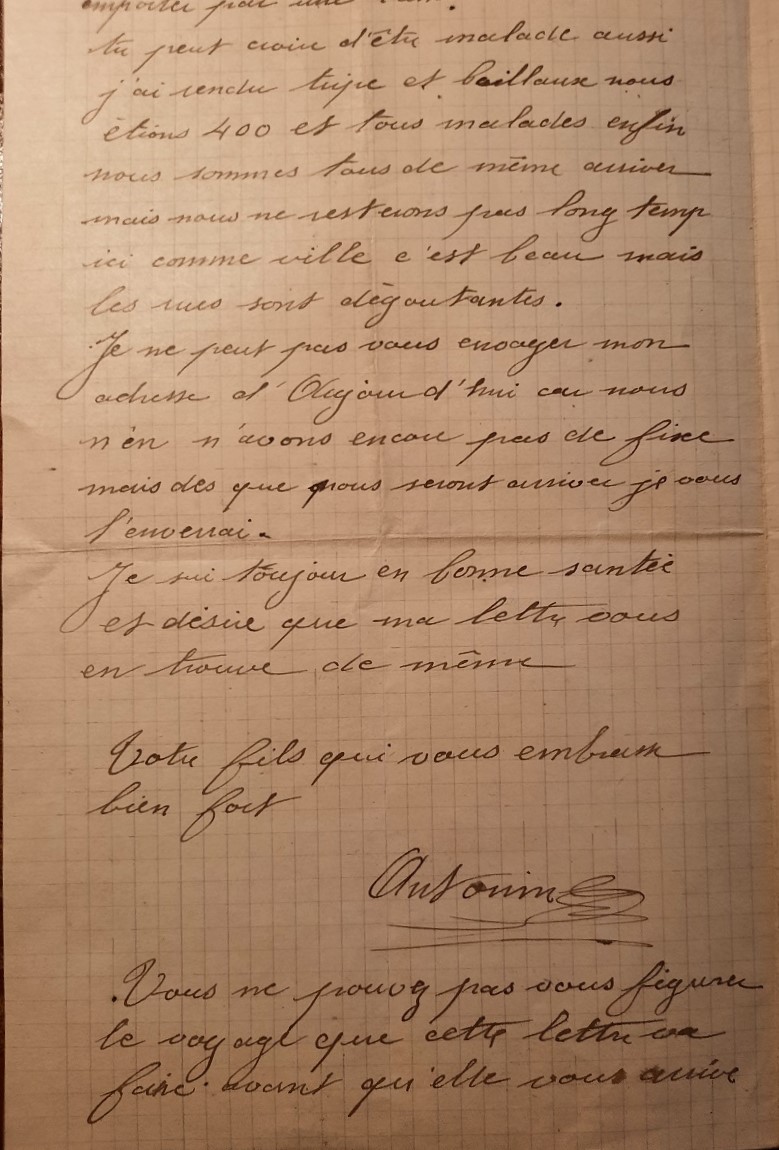 emporter par une
tu peut croir d'être malade aussi
j'ai rendu tripe et boillaux nous
étions 400 et tous malades enfin
nous sommes tous de même arriver
mais nous ne resterons pas long temp
ici comme ville c'est beau mais
les rues sont dégoutantes.
Je ne peut pas vous envoyer mon
adresse d'Aujourd'hui car nous
n'en n'avons encore pas de fixe
mais des que nous seront arriver je vous
l'enverrai.
Je sui toujour en bonne santée
et désire que ma lettre vous
en trouve de même
Votre fils qui vous embrasse
bien fort
Antonin
Vous ne pouvez pas vous figurer
le voyage que cette lettre va
faire avant qu'elle vous arrive